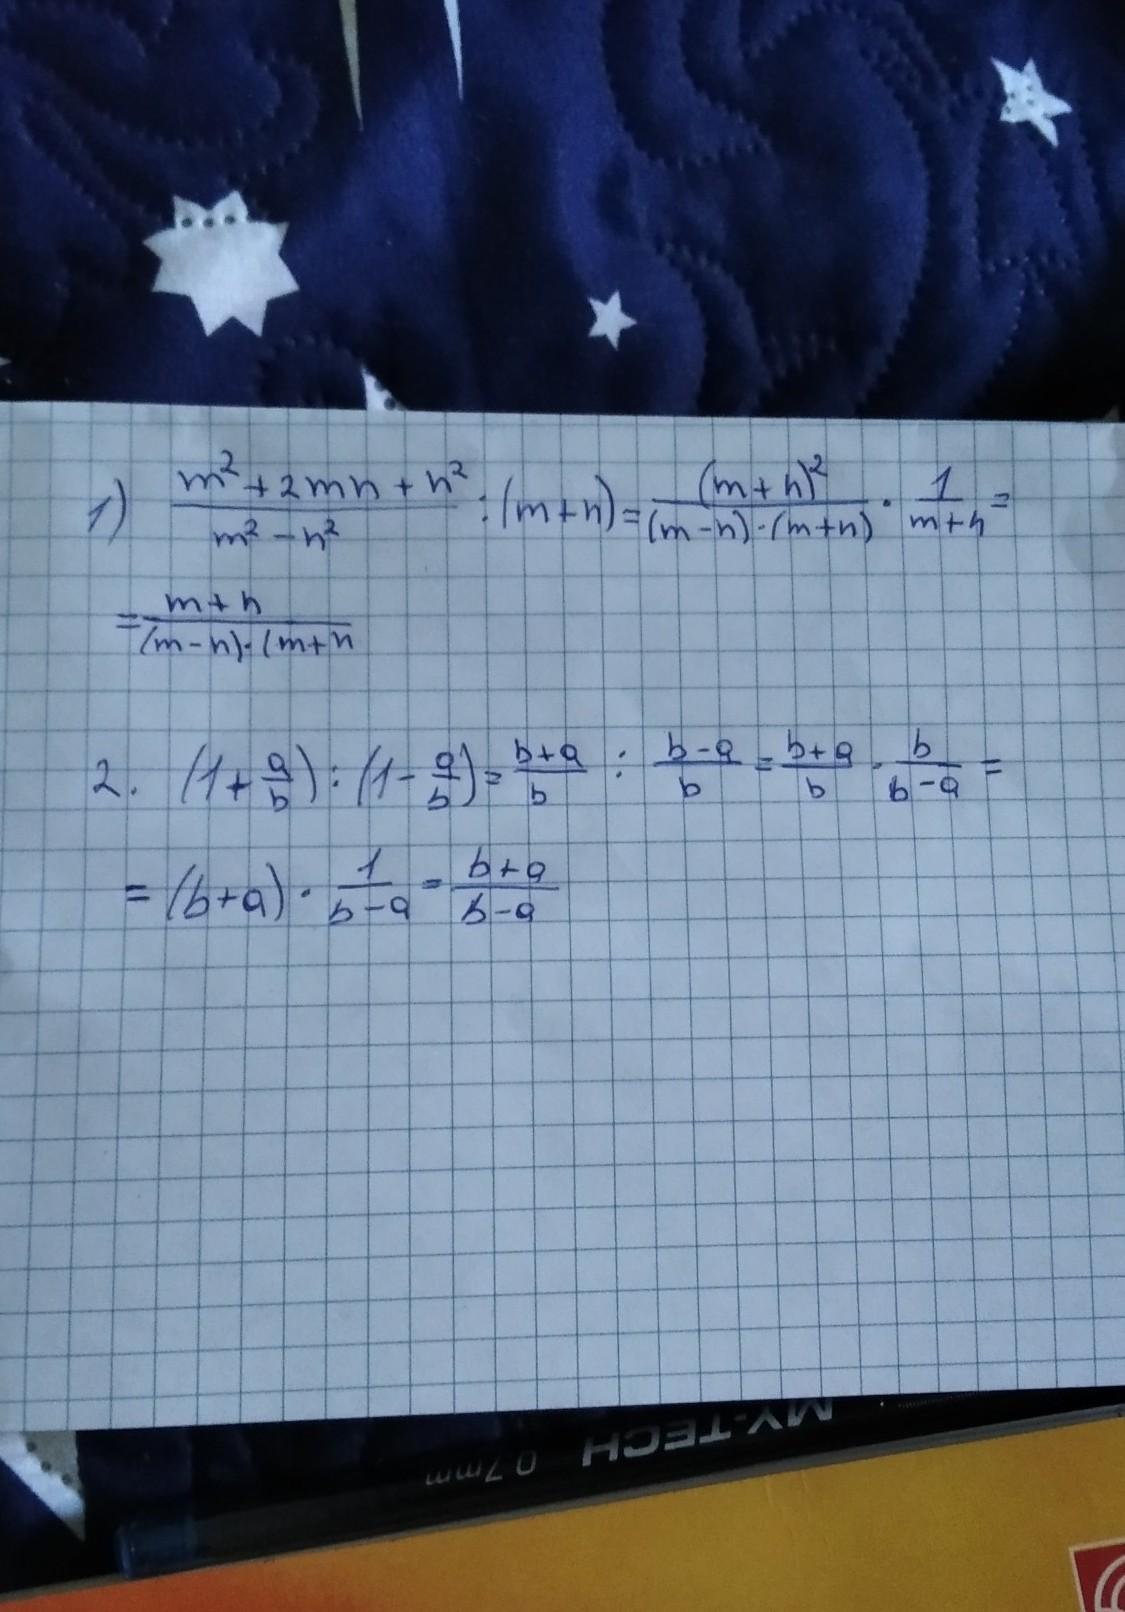 1) (m² + 2mn + n²)/(m² - n²) : (m+n) = (m+n)²/((m-n)·(m+n)) · 1/(m+n) =
= (m+n)/((m-n)·(m+n
2. (1 + a/b) : (1 - a/b) = (b+a)/b : (b-a)/b = (b+a)/b · b/(b-a) =
= (b+a) · 1/(b-a) = (b+a)/(b-a)
MY-TECH 0.7mm